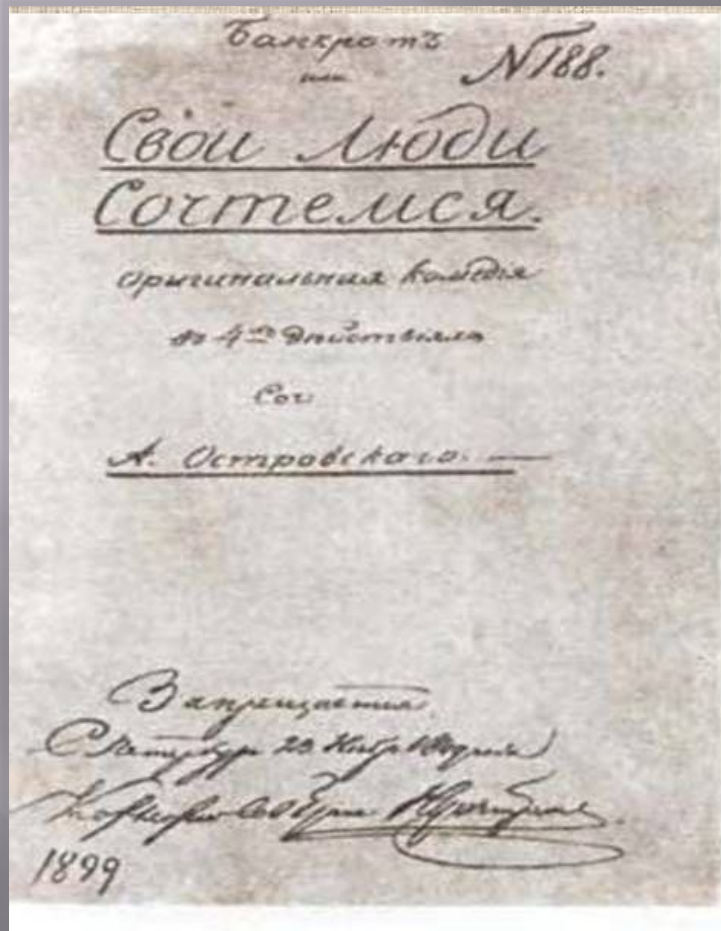 Банкротъ
или N 188.
Свои Люди
Сочтемся.
оригинальная комедія
въ 4хъ дѣйствіяхъ
Соч
А. Островскаго.
Запрещается.
С Петербург 23 Нояб
1899